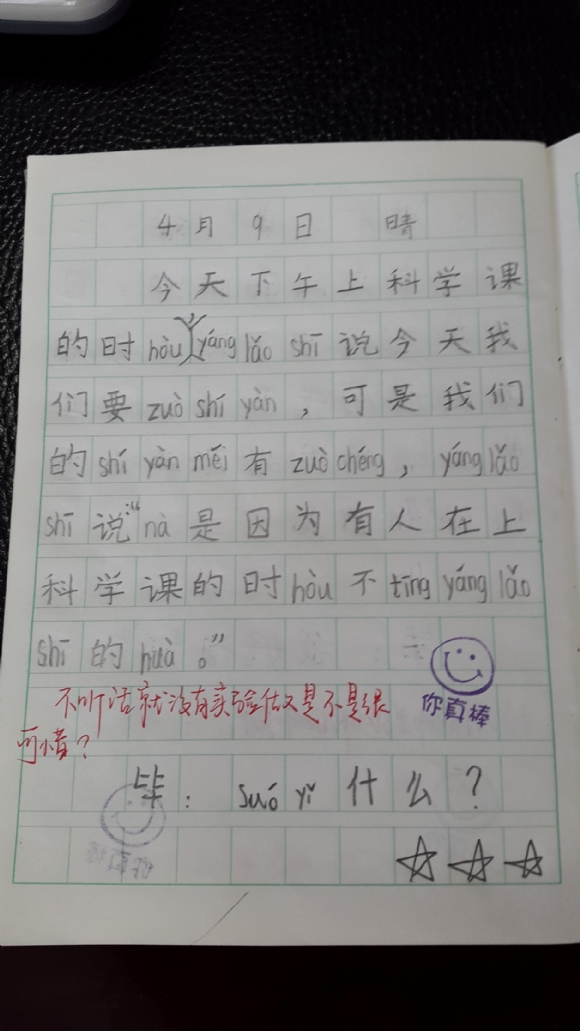 4月9日 晴
今天下午上科学课
的时hòu,yáng lǎo shī说今天我
们要zuò shí yàn,可是我们
的shí yàn méi有zuò chéng,yáng lǎo
shī说:“nà是因为有人在上
科学课的时hòu不tīng yáng lǎo
shī的huà。”
你真棒
不听话就没有实验做又是不是很
可惜?
毕:suó yǐ什么?
你真棒